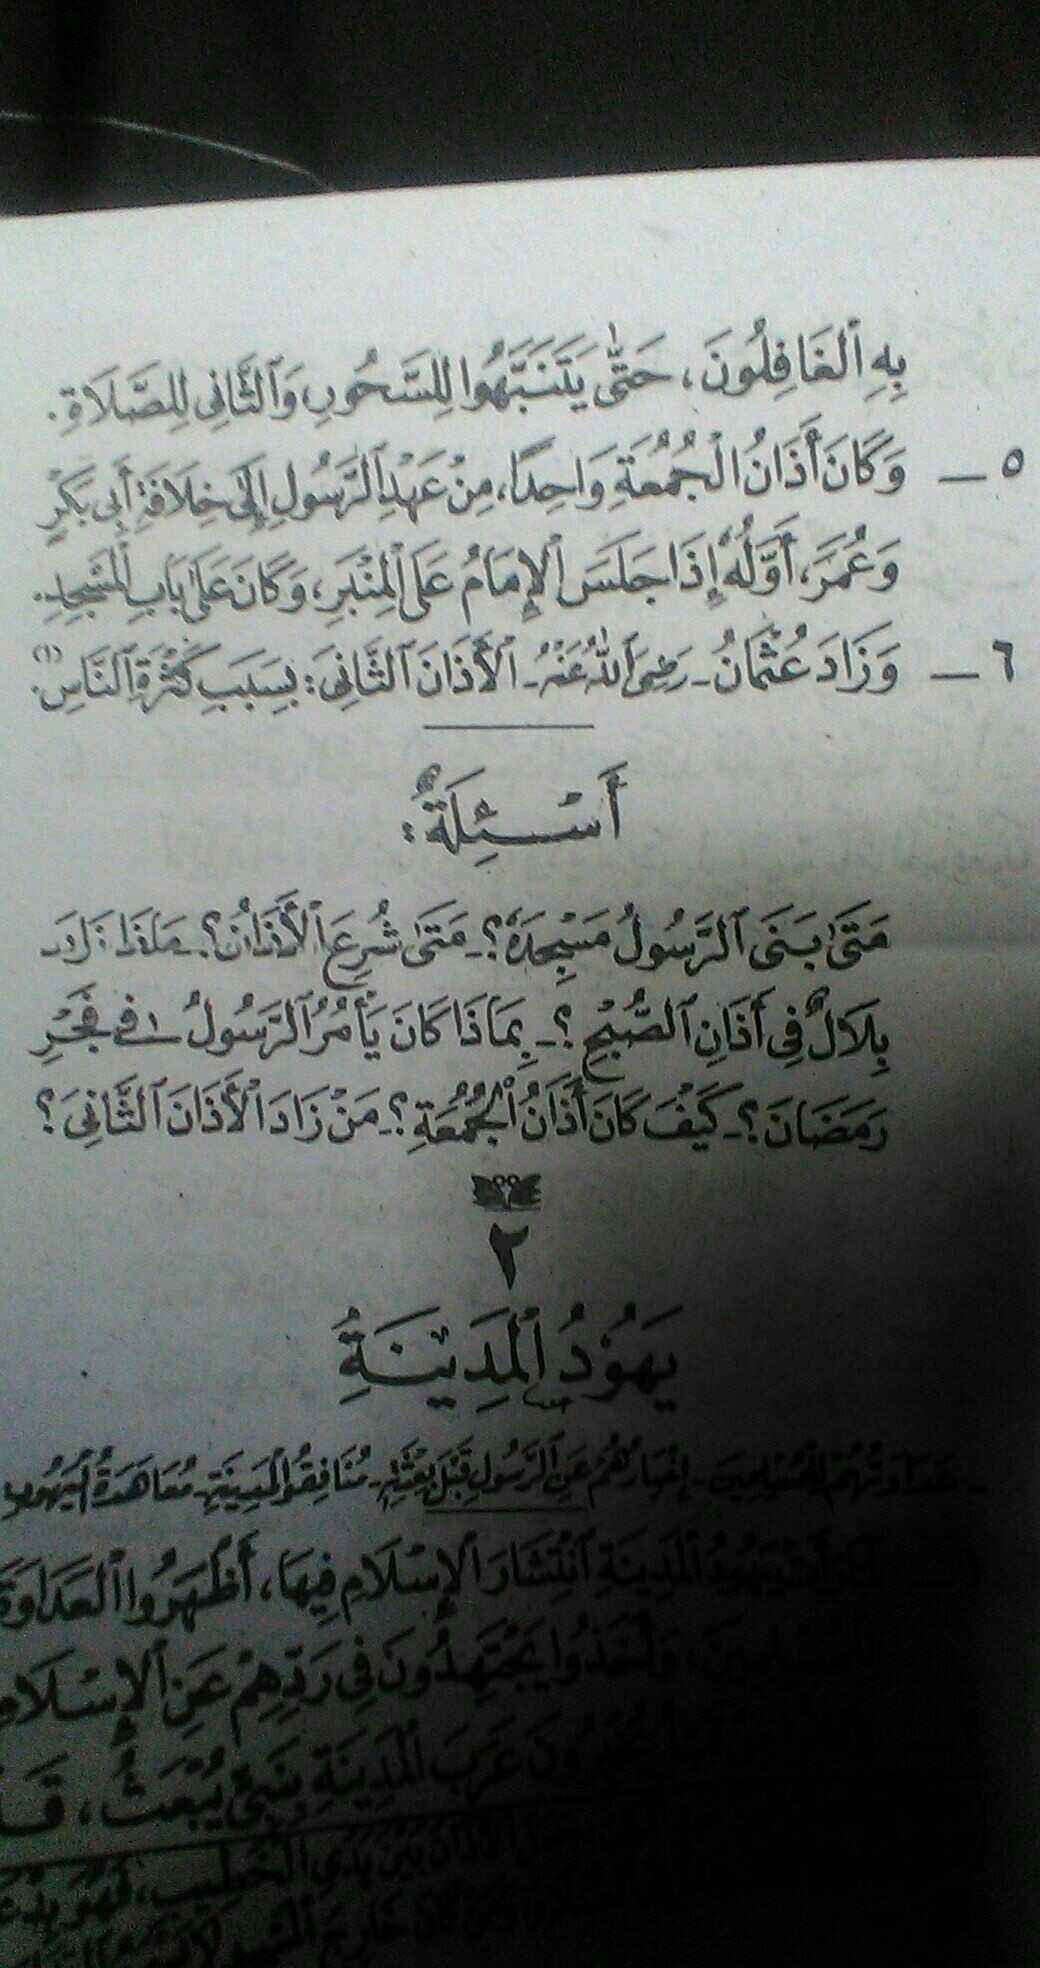 بِهِ ٱلْغَافِلُونَ، حَتَّىٰ يَتَنَبَّهُوا لِلسَّحُورِ وَٱلثَّانِي لِلصَّلَاةِ.
٥ ـ وَكَانَ أَذَانُ الْجُمُعَةِ وَاحِدًا، مِنْ عَهْدِ ٱلرَّسُولِ إِلَىٰ خِلَافَةِ أَبِي بَكْرٍ
وَعُمَرَ، أَوَّلُهُ إِذَا جَلَسَ ٱلْإِمَامُ عَلَى ٱلْمِنْبَرِ، وَكَانَ عَلَىٰ بَابِ ٱلْمَسْجِدِ.
٦ ـ وَزَادَ عُثْمَانُ ـ رَضِيَ ٱللَّهُ عَنْهُ ـ ٱلْأَذَانَ ٱلثَّانِيَ: بِسَبَبِ كَثْرَةِ ٱلنَّاسِ.(١)
أَسْئِلَةٌ:
مَتَىٰ بَنَى ٱلرَّسُولُ مَسْجِدَهُ؟ ـ مَتَىٰ شُرِعَ ٱلْأَذَانُ؟ ـ مَاذَا زَادَ
بِلَالٌ فِي أَذَانِ ٱلصُّبْحِ؟ ـ بِمَاذَا كَانَ يَأْمُرُ ٱلرَّسُولُ فِي فَجْرِ
رَمَضَانَ؟ ـ كَيْفَ كَانَ أَذَانُ ٱلْجُمُعَةِ؟ ـ مَنْ زَادَ ٱلْأَذَانَ ٱلثَّانِيَ؟
٢
يَهُودُ ٱلْمَدِينَةِ
ـ عَدَاوَتُهُمْ لِلْمُسْلِمِينَ ـ إِخْبَارُهُمْ عَنِ ٱلرَّسُولِ قَبْلَ بِعْثَتِهِ ـ مُنَافِقُو ٱلْمَدِينَةِ ـ مُعَاهَدَةُ ٱلْيَهُودِ
١ ـ يَهُودُ ٱلْمَدِينَةِ ٱنْتِشَارَ ٱلْإِسْلَامِ فِيهَا، أَظْهَرُوا ٱلْعَدَاوَةَ
لِلْمُسْلِمِينَ، وَأَخَذُوا يَجْتَهِدُونَ فِي رَدِّهِمْ عَنِ ٱلْإِسْلَامِ
يُخْبِرُونَ عَرَبَ ٱلْمَدِينَةِ بِنَبِيٍّ يُبْعَثُ،
ٱلْأَذَانَ بَيْنَ يَدَيِ ٱلْخَطِيبِ، فَهُوَ
كَانَ خَارِجَ ٱلْمَسْجِدِ